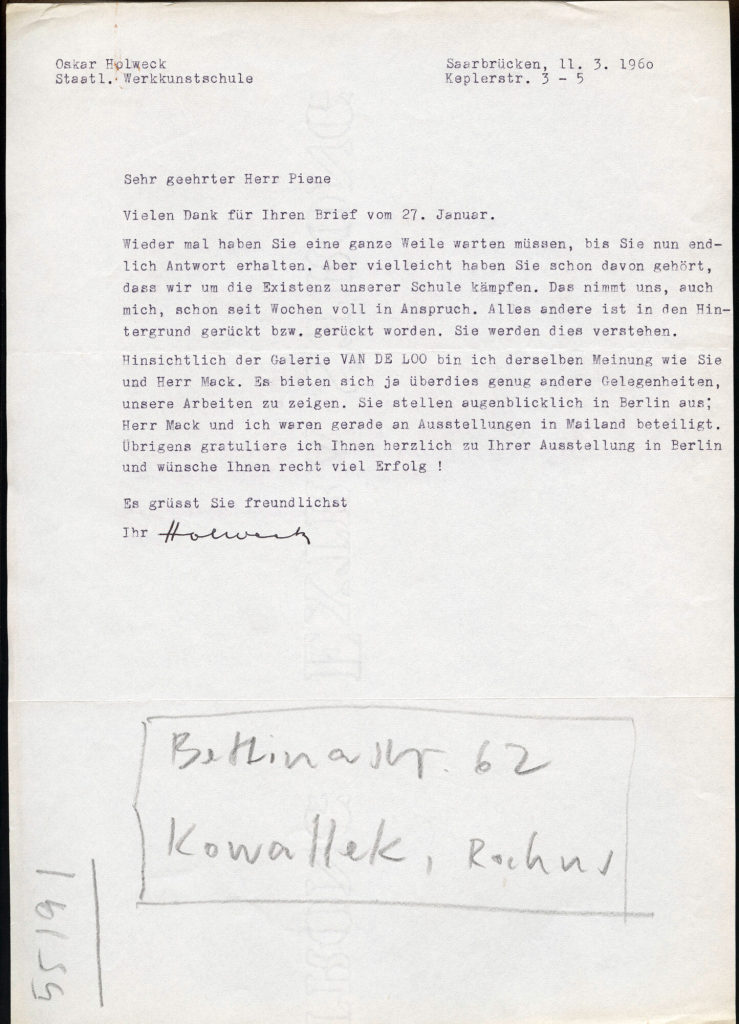 Oskar Holweck
Staatl. Werkkunstschule
Saarbrücken, 11. 3. 1960
Keplerstr. 3 - 5
Sehr geehrter Herr Piene
Vielen Dank für Ihren Brief vom 27. Januar.
Wieder mal haben Sie eine ganze Weile warten müssen, bis Sie nun end-
lich Antwort erhalten. Aber vielleicht haben Sie schon davon gehört,
dass wir um die Existenz unserer Schule kämpfen. Das nimmt uns, auch
mich, schon seit Wochen voll in Anspruch. Alles andere ist in den Hin-
tergrund gerückt bzw. gerückt worden. Sie werden dies verstehen.
Hinsichtlich der Galerie VAN DE LOO bin ich derselben Meinung wie Sie
und Herr Mack. Es bieten sich ja überdies genug andere Gelegenheiten,
unsere Arbeiten zu zeigen. Sie stellen augenblicklich in Berlin aus;
Herr Mack und ich waren gerade an Ausstellungen in Mailand beteiligt.
Übrigens gratuliere ich Ihnen herzlich zu Ihrer Ausstellung in Berlin
und wünsche Ihnen recht viel Erfolg !
Es grüsst Sie freundlichst
Ihr Holweck
Bettinastr. 62
Kowallek, Rochus